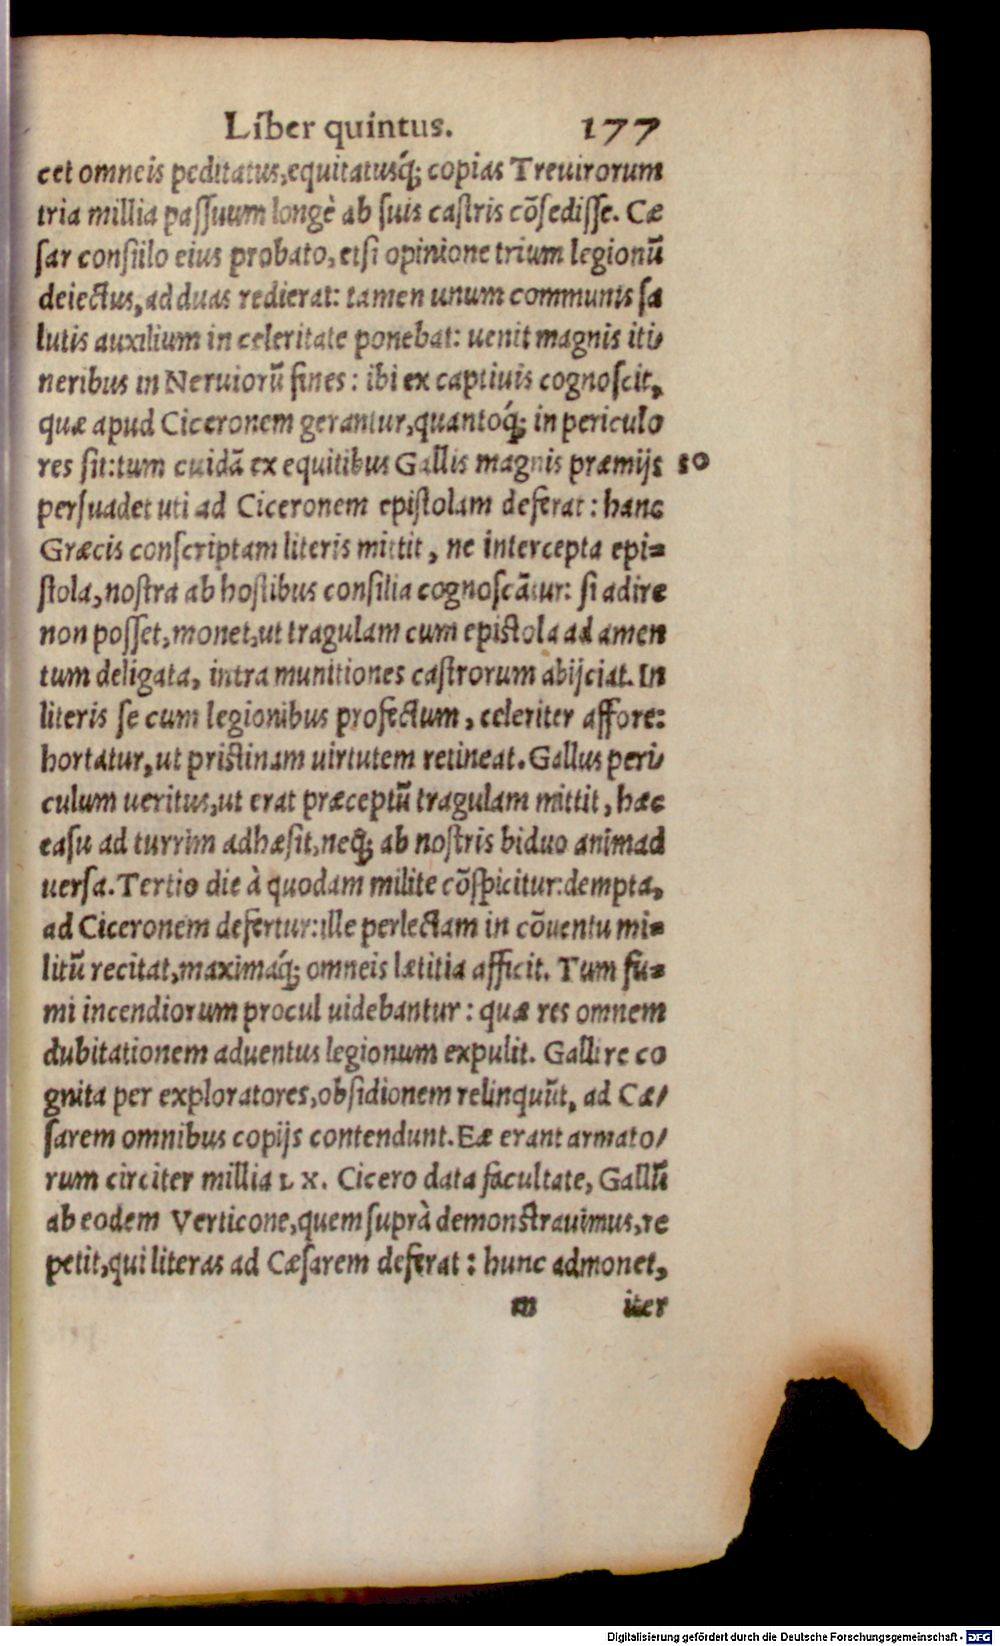 Liber quintus. 177
cet omneis peditatus, equitatusq́; copias Treuirorum
tria millia passuum longè ab suis castris cōsedisse. Cæ
sar consiilo eius probato, etsi opinione trium legionū
deiectus, ad duas redierat: tamen unum communis sa
lutis auxilium in celeritate ponebat: uenit magnis iti/
neribus in Neruiorū fines: ibi ex captiuis cognoscit,
quæ apud Ciceronem gerantur, quantoq́; in periculo
res sit: tum cuidā ex equitibus Gallis magnis præmijs 10
persuadet uti ad Ciceronem epistolam deferat: hanc
Græcis conscriptam literis mittit, ne intercepta epi=
stola, nostra ab hostibus consilia cognoscātur: si adire
non posset, monet, ut tragulam cum epistola ad amen
tum deligata, intra munitiones castrorum abijciat. In
literis se cum legionibus profectum, celeriter affore:
hortatur, ut pristinam uirtutem retineat. Gallus peri/
culum ueritus, ut erat præceptū tragulam mittit, hæc
casu ad turrim adhæsit, neq; ab nostris biduo animad
uersa. Tertio die à quodam milite cōspicitur: dempta,
ad Ciceronem defertur: ille perlectam in cōuentu mi=
litū recitat, maximaq́; omneis lætitia afficit. Tum fu=
mi incendiorum procul uidebantur: quæ res omnem
dubitationem aduentus legionum expulit. Galli re co
gnita per exploratores, obsidionem relinquūt, ad Cæ/
sarem omnibus copijs contendunt. Eæ erant armato/
rum circiter millia LX. Cicero data facultate, Gallū
ab eodem Verticone, quem suprà demonstrauimus, re
petit, qui literas ad Cæsarem deferat: hunc admonet,
m iter
Digitalisierung gefördert durch die Deutsche Forschungsgemeinschaft - DFG